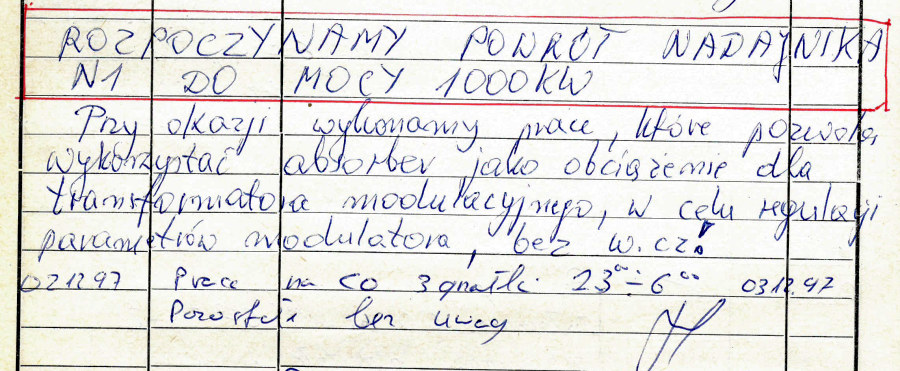 ROZPOCZYNAMY POWRÓT NADAJNIKA
N1 DO MOCY 1000KW
Przy okazji wykonamy prace, które pozwolą
wykorzystać absorber jako obciążenie dla
transformatora modulacyjnego, w celu regulacji
parametrów modulatora, bez w.cz!
021297 Praca na co 23⁰⁰÷6⁰⁰ 031297
Pozostałe bez uwag